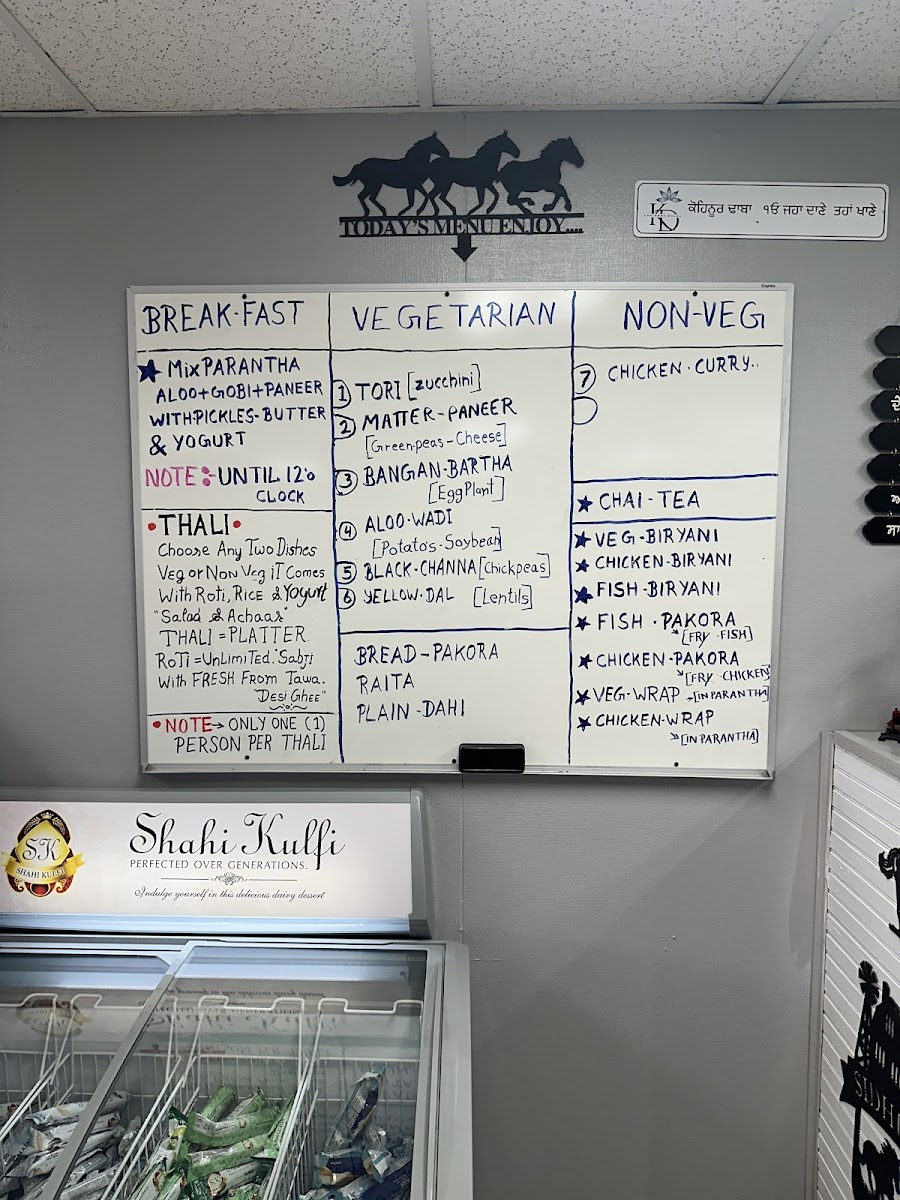 TODAY'S MENU ENJOY....
KD
ਕੋਹਿਨੂਰ ਢਾਬਾ ੧ਓ ਜਹਾ ਦਾਣੇ ਤਹਾਂ ਖਾਣੇ
Staples
BREAK-FAST
★ Mix PARANTHA
ALOO+GOBI+PANEER
WITH PICKLES-BUTTER
& YOGURT
NOTE:- UNTIL 12o
CLOCK
•THALI•
Choose Any Two Dishes
Veg or Non Veg iT Comes
With Roti, Rice & Yogurt
"Salad & Achaar"
THALI = PLATTER.
RoTi = UnLimiTed. Sabji
With FRESH From Tawa.
"Desi Ghee"
•NOTE→ ONLY ONE (1)
PERSON PER THALI
VEGETARIAN
1 TORI [zucchini]
2 MATTER-PANEER
[Green-peas-Cheese]
3 BANGAN-BARTHA
[EggPlant]
4 ALOO-WADI
[Potato's-Soybean]
5 BLACK-CHANNA [Chickpeas]
6 YELLOW-DAL [Lentils]
BREAD-PAKORA
RAITA
PLAIN-DAHI
NON-VEG
7 CHICKEN-CURRY..
★ CHAI-TEA
★ VEG-BIRYANI
★ CHICKEN-BIRYANI
★ FISH-BIRYANI
★ FISH-PAKORA
→ [FRY-FISH]
★ CHICKEN-PAKORA
→ [FRY-CHICKEN]
★ VEG-WRAP → [IN PARANTHA]
★ CHICKEN-WRAP
→ [IN PARANTHA]
SK
SHAHI KULFI
Shahi Kulfi
PERFECTED OVER GENERATIONS.
Indulge yourself in this delicious dairy dessert